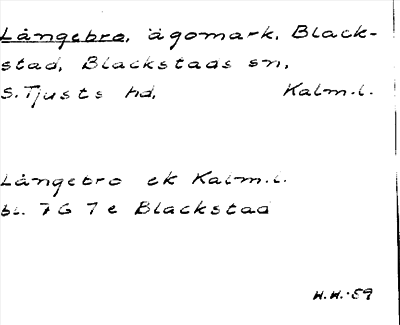 Långebro, ägomark, Black-
stad, Blackstads sn,
S. Tjusts hd, Kalm.l.
Långebro ek Kalm.l.
bl. 7G 7e Blackstad
H.H.-89